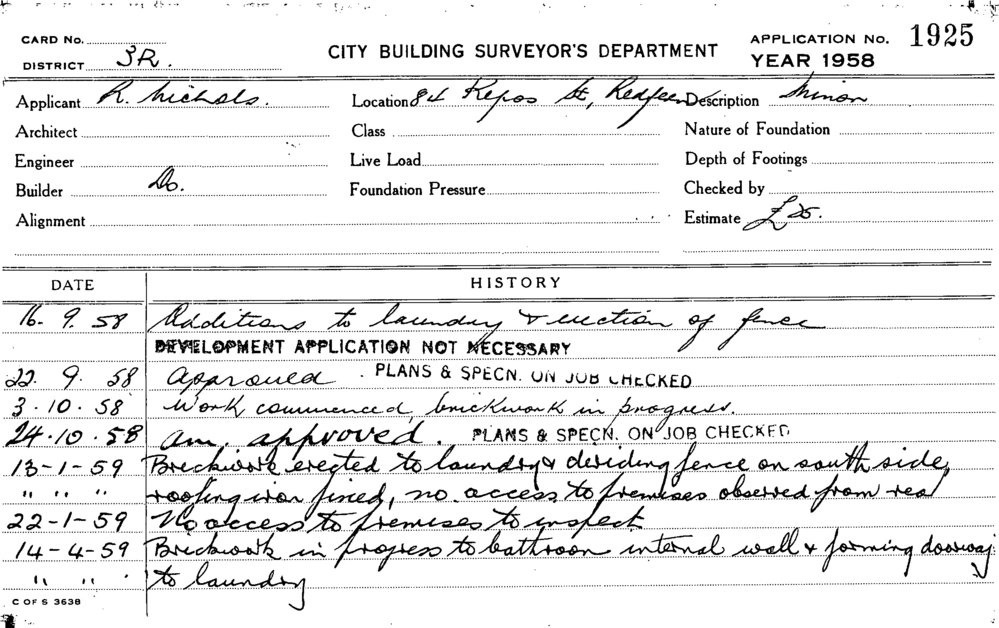 CARD No.
DISTRICT 3R.
CITY BUILDING SURVEYOR'S DEPARTMENT
APPLICATION No. 1925
YEAR 1958
Applicant R. Nichols. Location 84 Kepos St, Redfern Description Minor
Architect Class Nature of Foundation
Engineer Live Load Depth of Footings
Builder Do. Foundation Pressure Checked by
Alignment Estimate £25.
DATE HISTORY
16. 9. 58 Additions to laundry & erection of fence
DEVELOPMENT APPLICATION NOT NECESSARY
22. 9. 58 Approved. PLANS & SPECN. ON JOB CHECKED
3.10.58 Work commenced, brickwork in progress.
24.10.58 am. approved. PLANS & SPECN. ON JOB CHECKED
13-1-59 Brickwork erected to laundry & dividing fence on south side,
" " " roofing iron fixed, no access to premises observed from rear
22-1-59 No access to premises to inspect
14-4-59 Brickwork in progress to bathroom internal wall & forming doorway
" " " to laundry
C OF S 3638